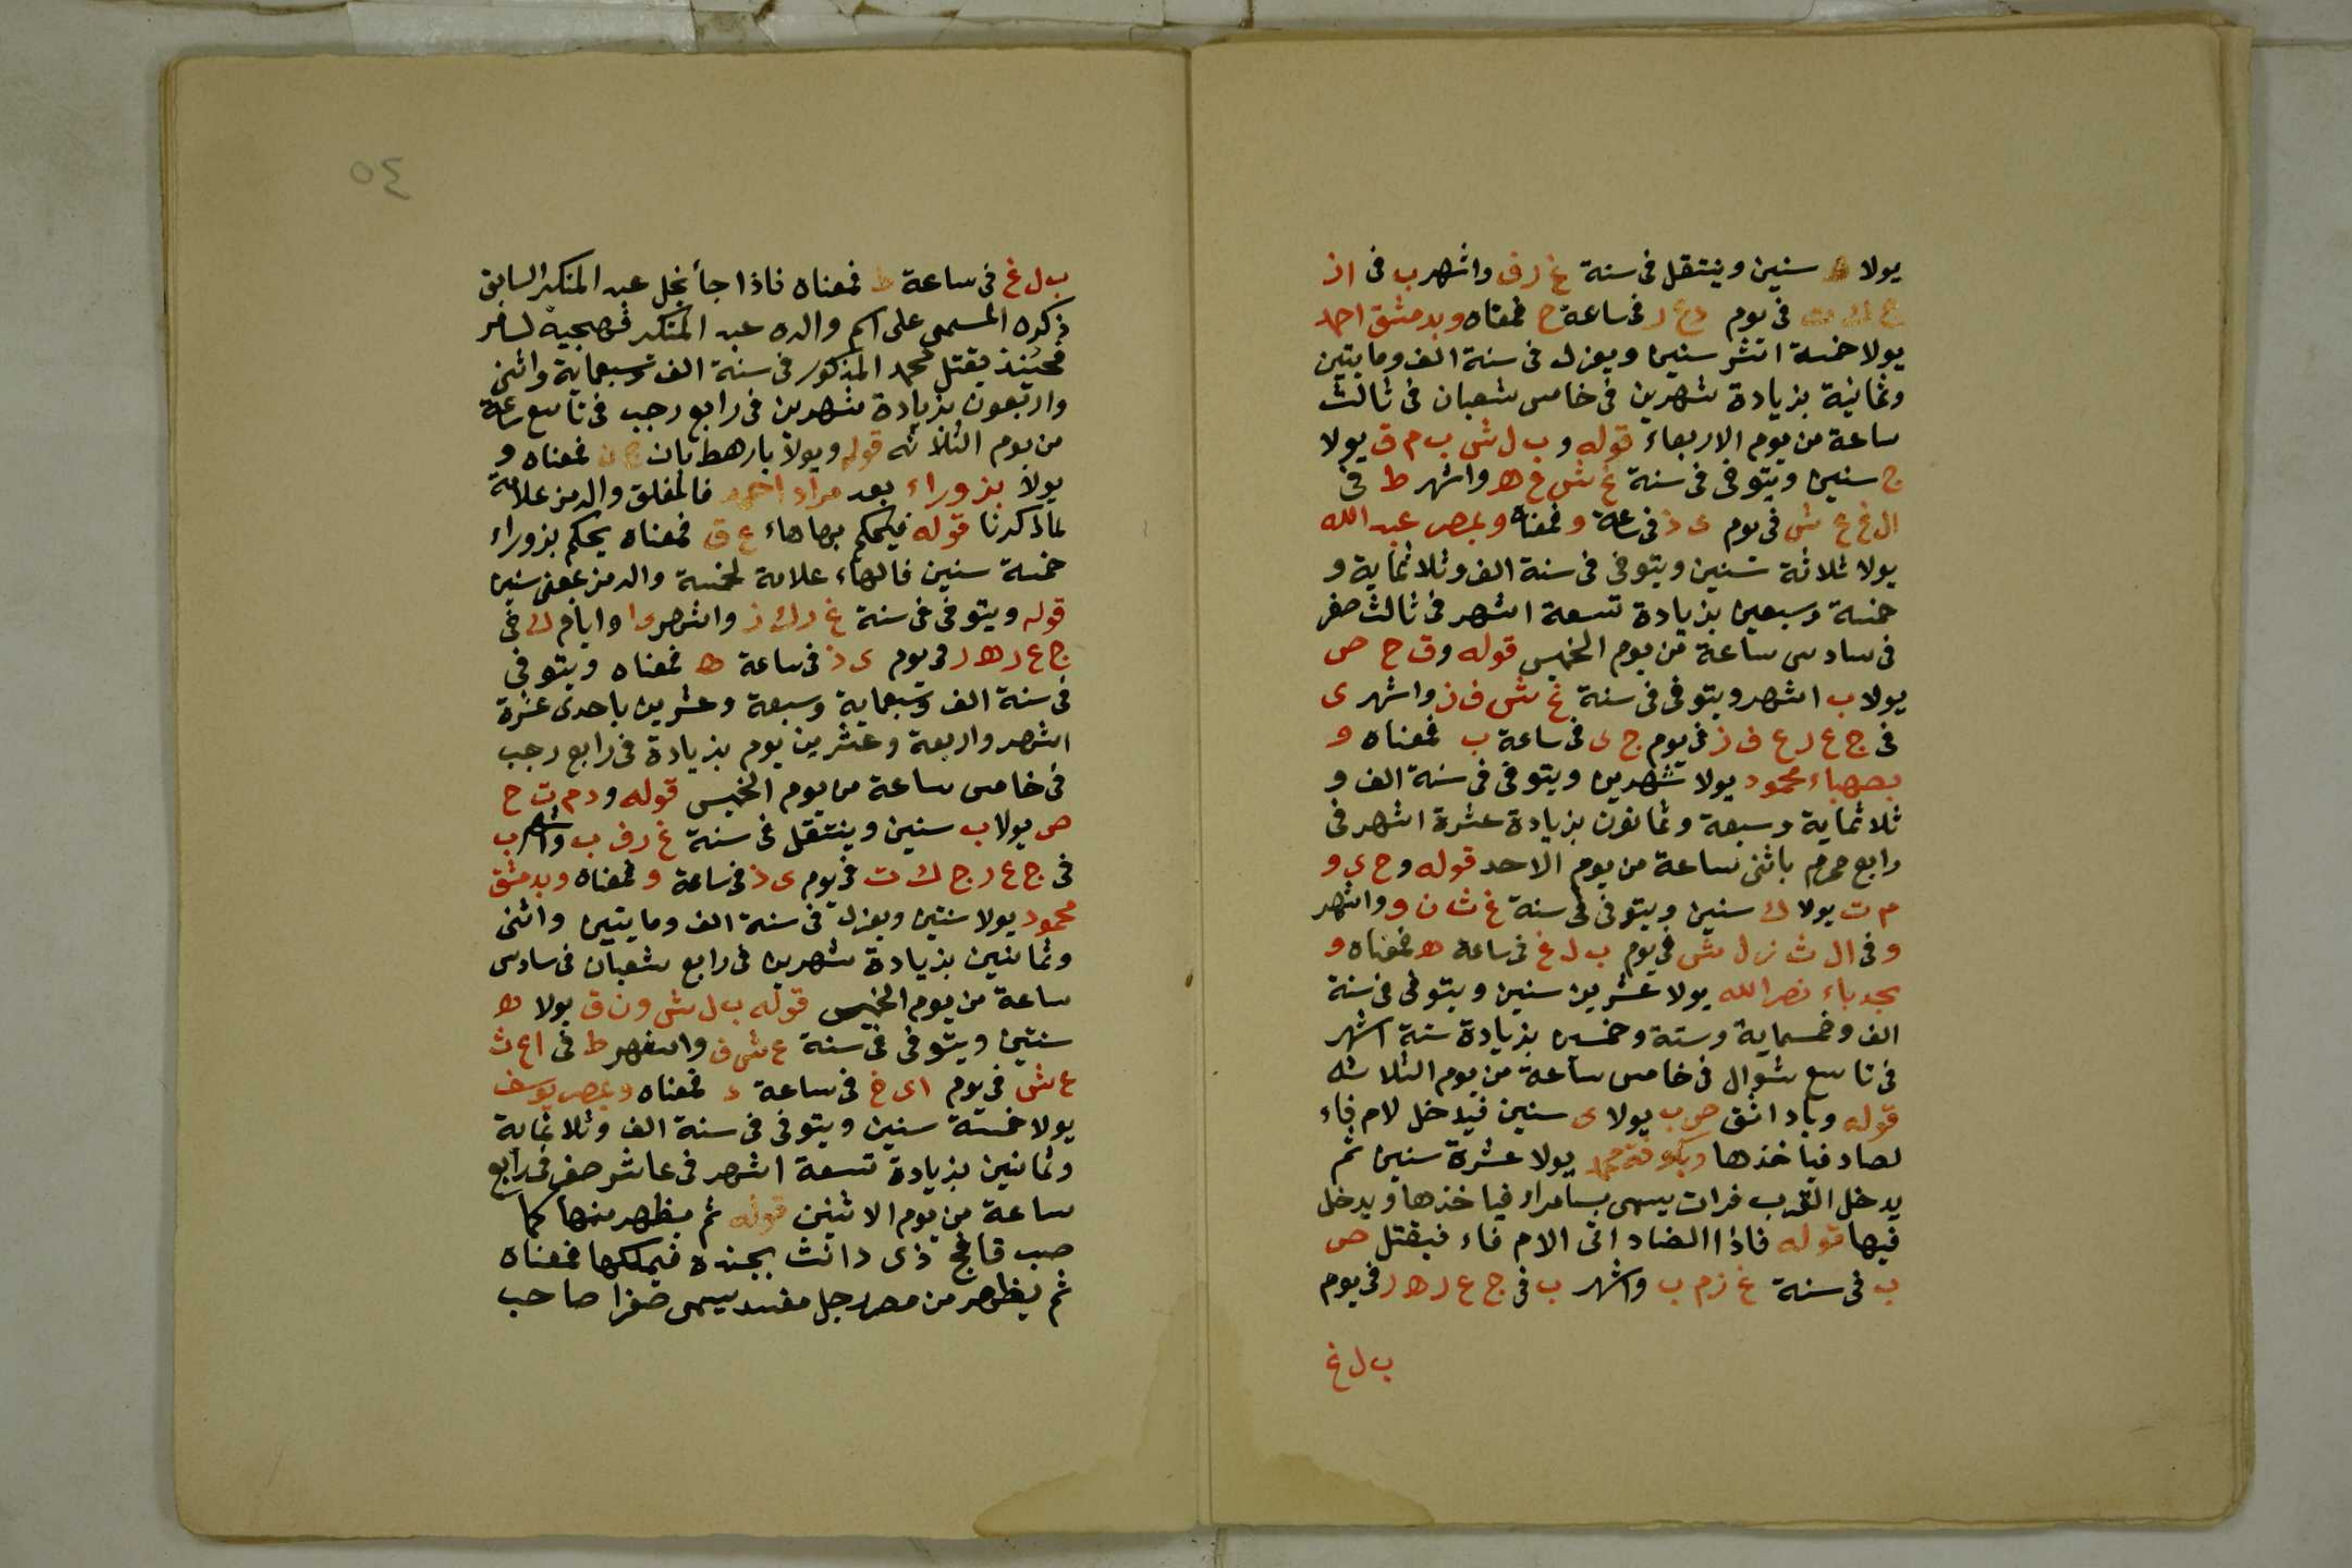 يولا ه سنين وينتقل فى سنة غ ر ف واشهر ب فى ا ز
فى يوم ر فى ساعة ح فمعناه وبدمشق احمد
يولا خمسة اشهر سنين ويعزل فى سنة الف ومايتين
وثمانية بزيادة شهرين فى خامس شعبان فى ثالث
ساعة من يوم الاربعاء قوله و ب ل ش ب م ق يولا
ج سنين ويتوفى فى سنة غ ش ع ه واشهر ط فى
ال ع ع ش فى يوم ى ذ فى ساعة و فمعناه وبمصر عبد الله
يولا ثلاثة سنين ويتوفى فى سنة الف وثلاثماية و
خمسة وسبعين بزيادة تسعة اشهر فى ثالث صفر
فى سادس ساعة من يوم الخميس قوله و ق ح ص
يولا ب اشهر ويتوفى فى سنة غ ش ف ز واشهر ى
فى ج ع ر ع ف ز فى يوم ج ى فى ساعة ب فمعناه و
بصهباء محمود يولا شهرين ويتوفى فى سنة الف و
ثلاثماية وسبعة وثمانون بزيادة عشرة اشهر فى
رابع محرم باثنى ساعة من يوم الاحد قوله و ح ى و
م ت يولا ك سنين ويتوفى فى سنة غ ث ن و واشهر
و فى ال ث ز ل ش فى يوم ب ل غ فى ساعة ه فمعناه و
بحدباء نصر الله يولا عشرين سنين ويتوفى فى سنة
الف وخمسماية وستة وخمسين بزيادة ستة اشهر
فى تاسع شوال فى خامس ساعة من يوم الثلاثه
قوله وباد انق ص ب يولا ى سنين فيدخل لام فاء
لصاد فياخذها وبكوفة محمد يولا عشرة سنين ثم
يدخل القرب فرات يسمى بسامراء فياخذها ويدخل
فيها قوله فاذا الضاد اتى الام فاء فيقتل ص
ب فى سنة غ ز م ب واشهر ب فى ج ع ر ه ر فى يوم
ب ل غ
٥٤
ب ل غ فى ساعة ط فمعناه فاذا جأ نجل عبد المنكر السابق
ذكره المسمى على اسم والده عبد المنكر لسافر
فحينئذ يقتل محمد المذكور فى سنة الف وسبعماية واثنى
واربعون بزيادة شهرين فى رابع رجب فى تاسع ساعة
من يوم الثلاثه قوله ويولا بارهط بان فمعناه و
يولا بزوراء بعد مراد احمد فالمغلق والرمز علامة
لما ذكرنا قوله فيحكم بها هاء ع ق فمعناه يحكم بزوراء
خمسة سنين فالهاء علامة لخمسة والرمز بمعنى سنين
قوله ويتوفى فى سنة غ ر ك ز واشهر ى ا وايام ك فى
ج ع ر ه ر فى يوم ى ذ فى ساعة ه فمعناه ويتوفى
فى سنة الف وسبعماية وسبعة وعشرين باحدى عشرة
اشهر واربعة وعشرين يوم بزيادة فى رابع رجب
فى خامس ساعة من يوم الخميس قوله و د م ت ح
ص يولا ب سنين وينتقل فى سنة غ ر ف ب واشهر ب
فى ج ع ر ج ك ت فى يوم ى ذ فى ساعة و فمعناه وبدمشق
محمود يولا سنتين ويعزل فى سنة الف ومايتين واثنى
وثمانين بزيادة شهرين فى رابع شعبان فى سادس
ساعة من يوم الخميس قوله ب ل ش و ن ق يولا ه
سنتين ويتوفى فى سنة ع ش ف واشهر ط فى ا ع ث
ع ش فى يوم ا ى خ فى ساعة د فمعناه وبمصر يوسف
يولا خمسة سنين ويتوفى فى سنة الف وثلاثماية
وثمانين بزيادة تسعة اشهر فى عاشر صفر فى رابع
ساعة من يوم الاثنين قوله ثم يظهر منها كما
صب قافح ذى دانث بجنده فيملكها فمعناه
ثم يظهر من مصر رجل مفسد يسمى صفرا صاحب